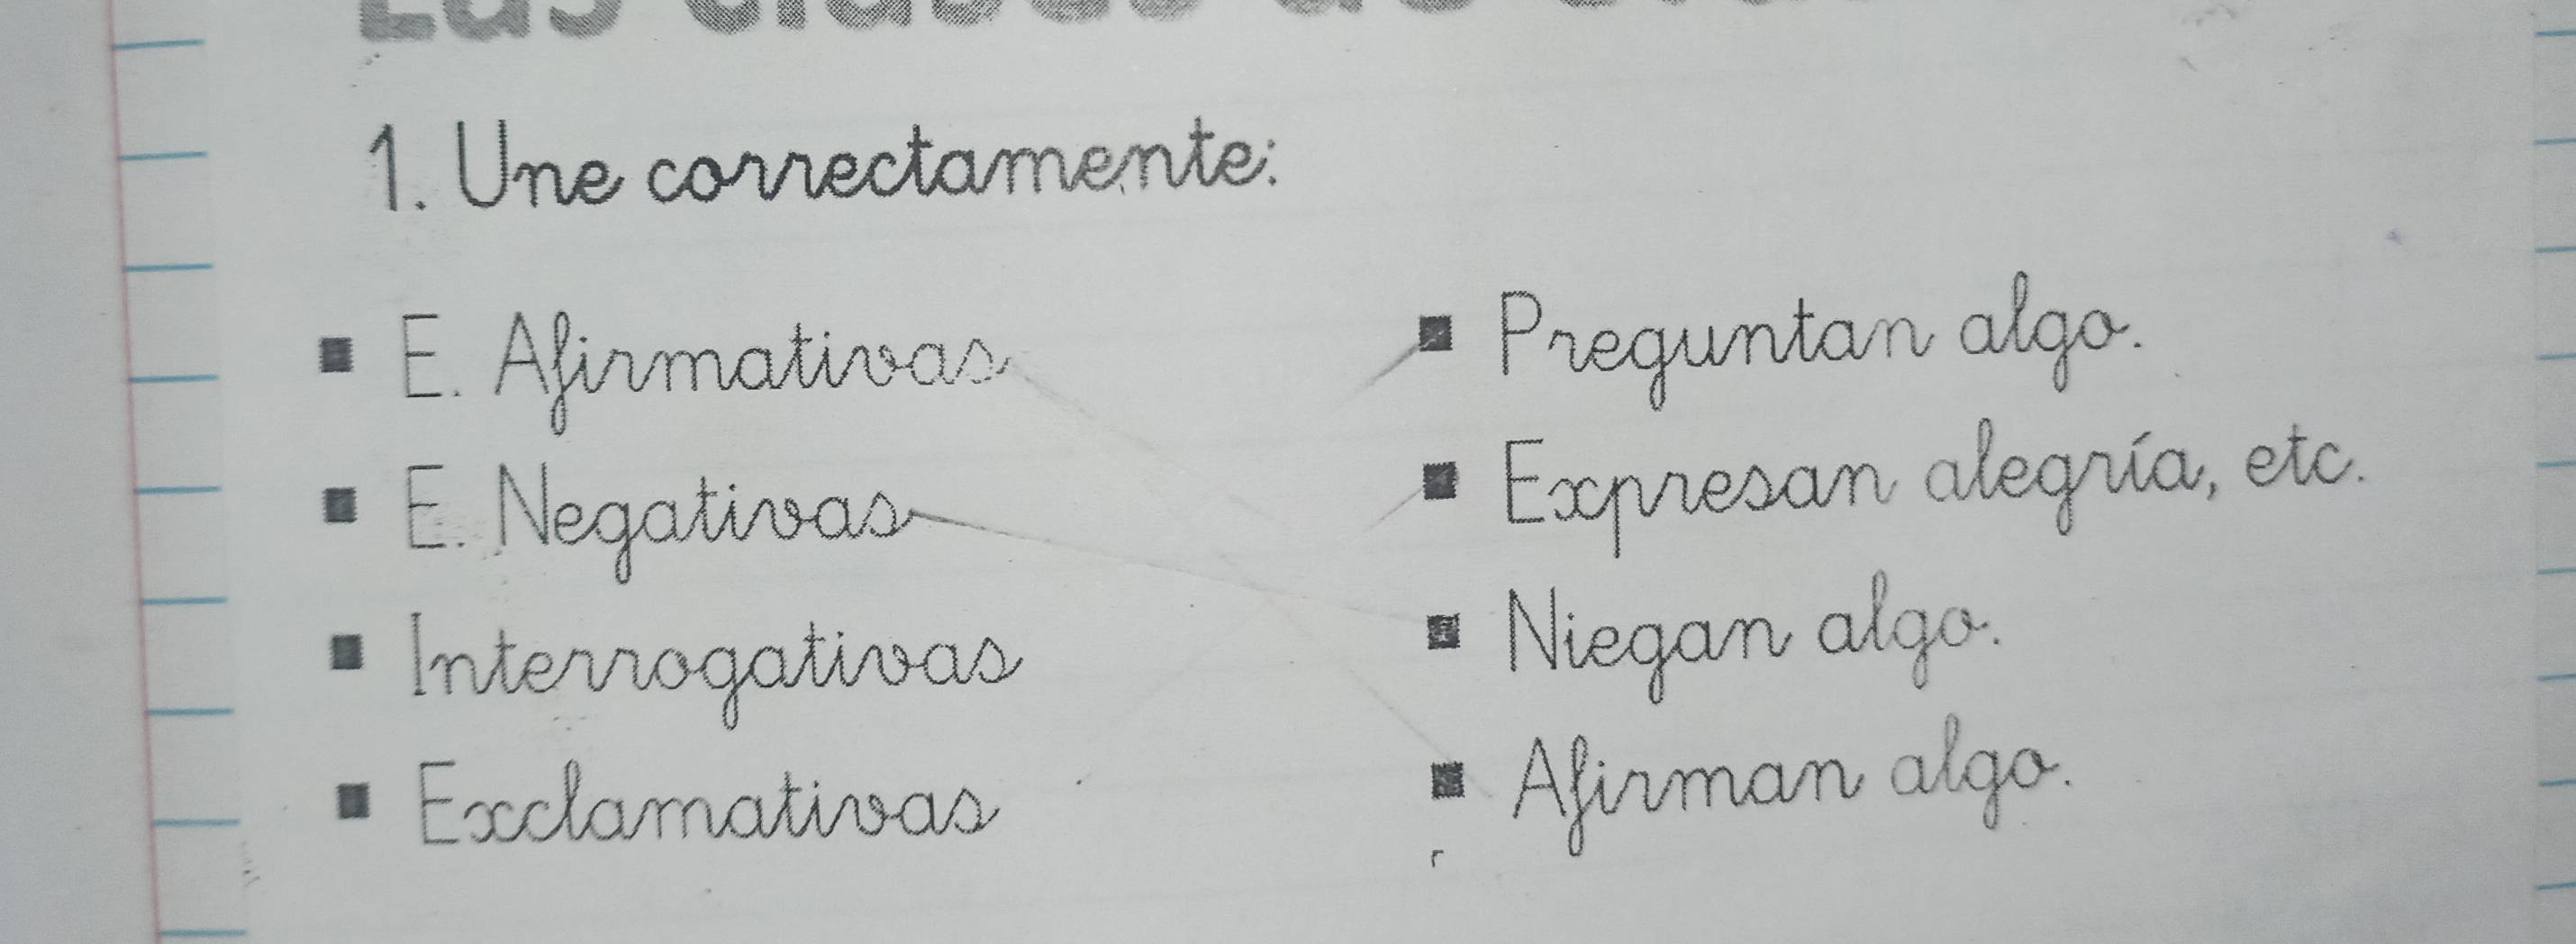 1. Une correctamente:
E. Afirmativas
E. Negativas
Interrogativas
Exclamativas
Preguntan algo.
Expresan alegría, etc.
Niegan algo.
Afirman algo.